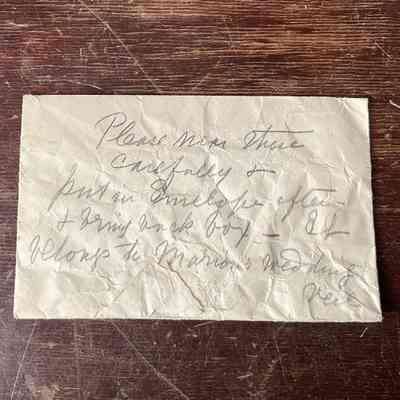 Please
carefully &
put in Envelope after
& bring back box – It
belongs to Marion's wedding
veil